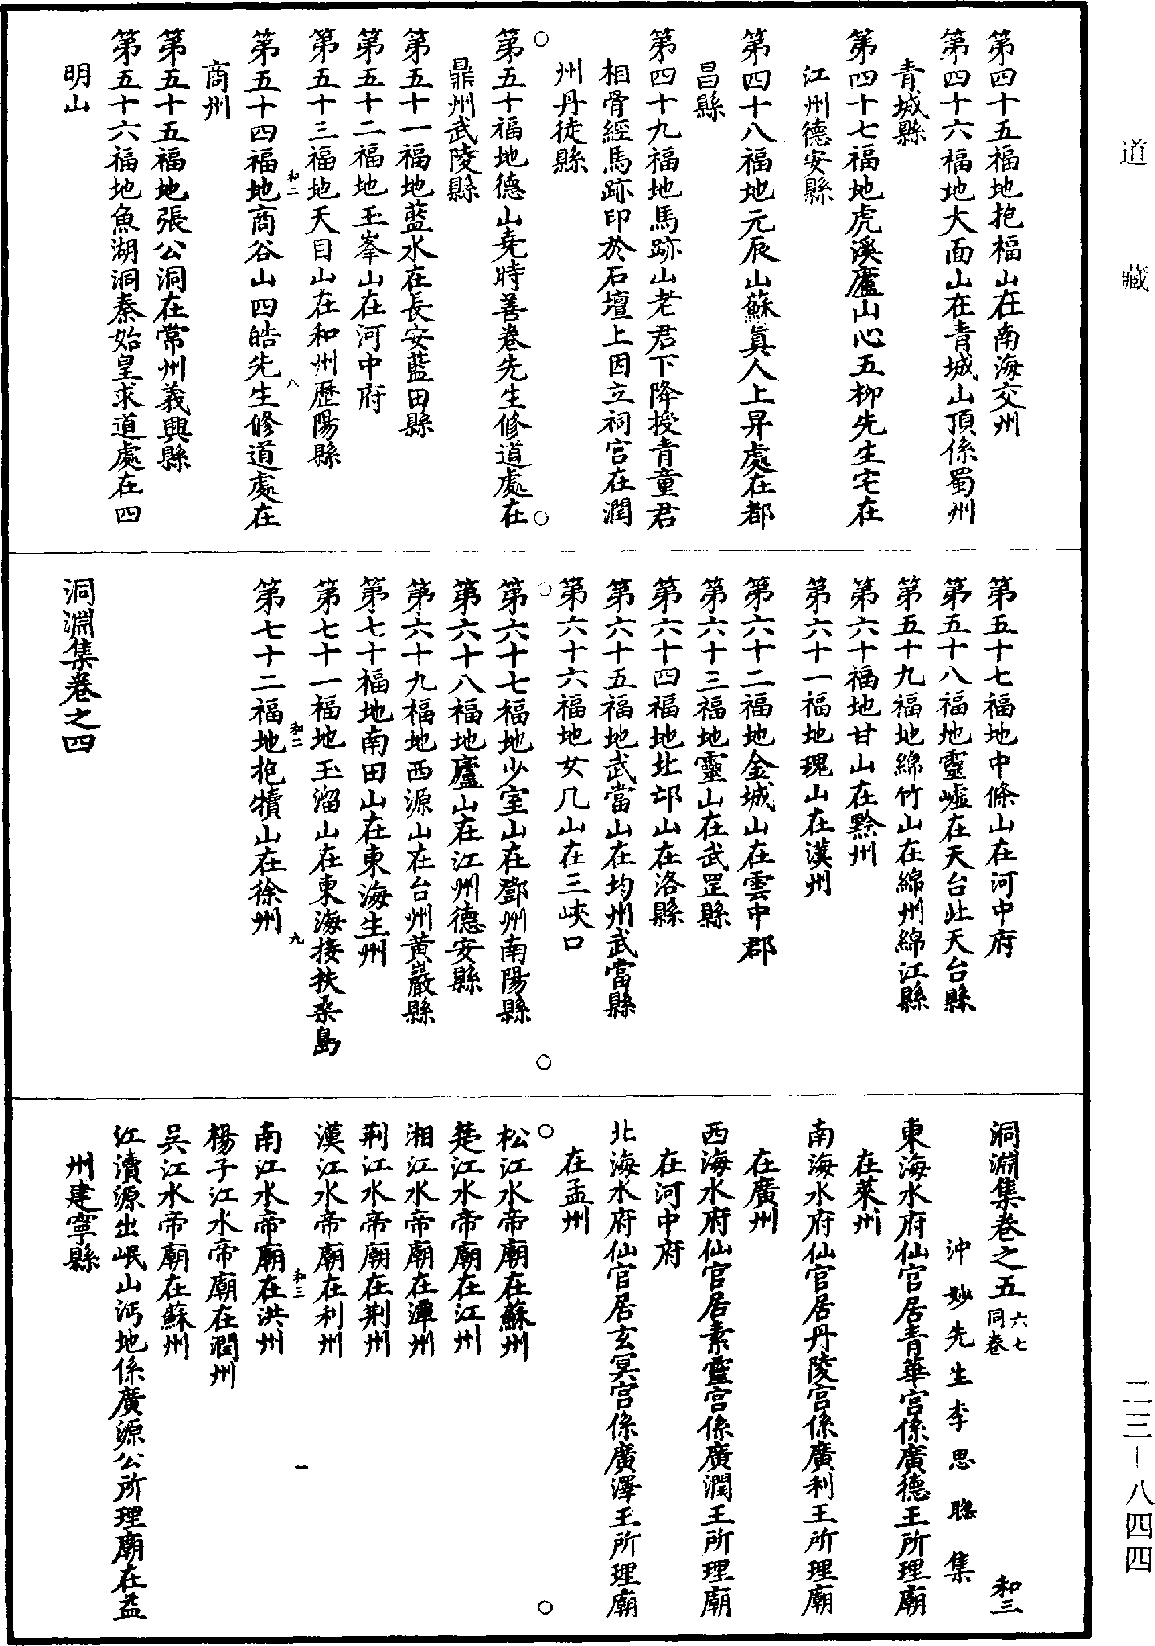 第四十五福地抱福山在南海交州
第四十六福地大面山在青城山頂係蜀州
青城縣
第四十七福地虎溪廬山心五柳先生宅在
江州德安縣
第四十八福地元辰山蘇真人上昇處在都
昌縣
第四十九福地馬跡山老君下降授青童君
相骨經馬跡印於石壇上因立祠宮在潤
州丹徒縣
第五十福地德山堯時善卷先生修道處在
鼎州武陵縣
第五十一福地藍水在長安藍田縣
第五十二福地玉峯山在河中府
第五十三福地天目山在和州歷陽縣
和二 八
第五十四福地商谷山四皓先生修道處在
商州
第五十五福地張公洞在常州義興縣
第五十六福地魚湖洞秦始皇求道處在四
明山
第五十七福地中條山在河中府
第五十八福地靈墟在天台北天台縣
第五十九福地綿竹山在綿州綿江縣
第六十福地甘山在黔州
第六十一福地瑰山在漢州
第六十二福地金城山在雲中郡
第六十三福地靈山在武罡縣
第六十四福地北邙山在洛縣
第六十五福地武當山在均州武當縣
第六十六福地女几山在三峽口
第六十七福地少室山在鄧州南陽縣
第六十八福地廬山在江州德安縣
第六十九福地西源山在台州黃巖縣
第七十福地南田山在東海生州
第七十一福地玉溜山在東海接扶桑島
和二 九
第七十二福地抱犢山在徐州
洞淵集卷之四
洞淵集卷之五 六七同卷 和三
沖妙先生李思聰集
東海水府仙官居青華宮係廣德王所理廟
在萊州
南海水府仙官居丹陵宮係廣利王所理廟
在廣州
西海水府仙官居素靈宮係廣潤王所理廟
在河中府
北海水府仙官居玄冥宮係廣澤王所理廟
在孟州
松江水帝廟在蘇州
楚江水帝廟在江州
湘江水帝廟在潭州
荊江水帝廟在荊州
漢江水帝廟在利州
和三 一
南江水帝廟在洪州
楊子江水帝廟在潤州
吳江水帝廟在蘇州
江瀆源出岷山沔地係廣源公所理廟在益
州建寧縣
道藏
二三—八四四